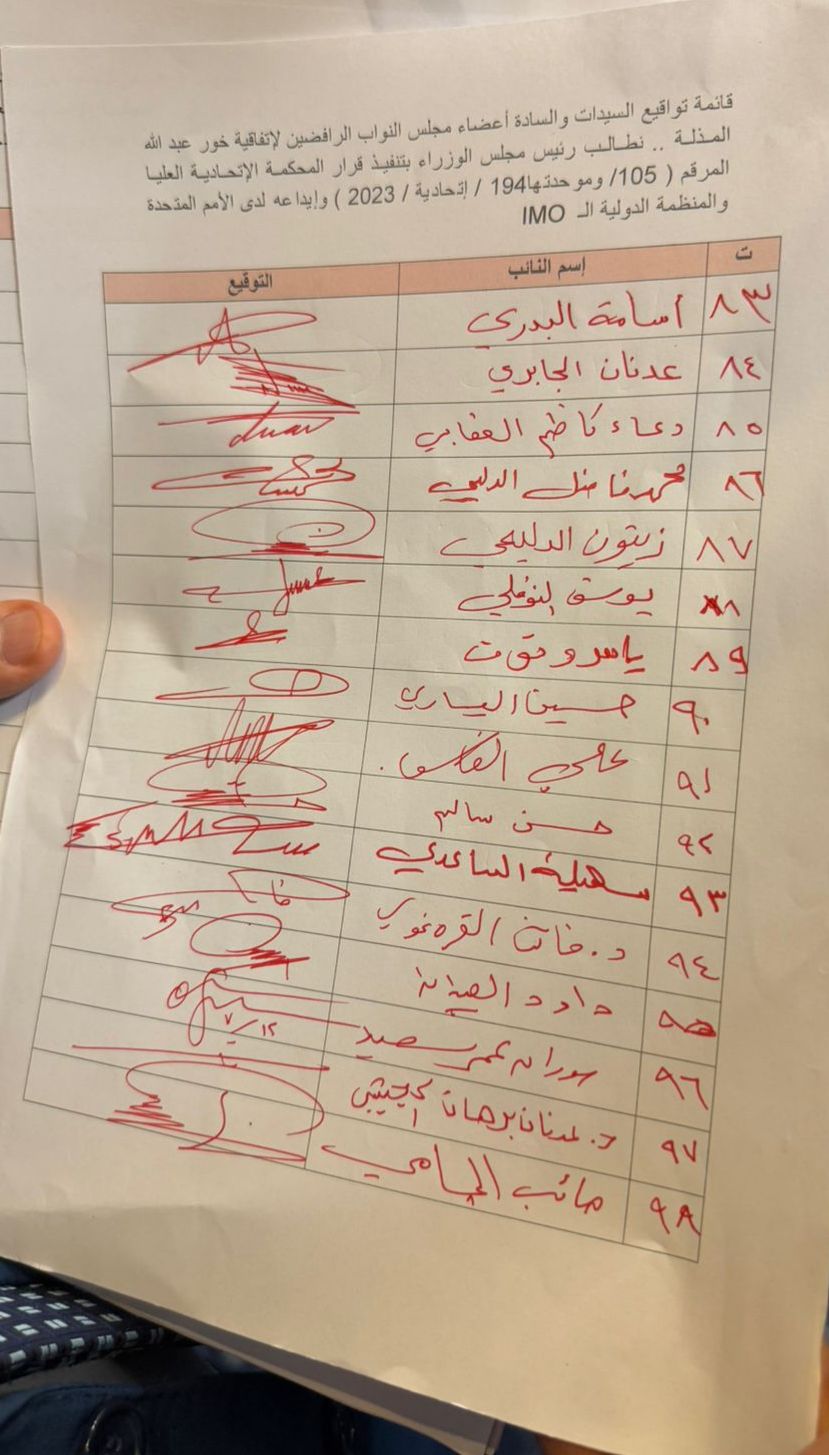 قائمة تواقيع السيدات والسادة أعضاء مجلس النواب الرافضين لإتفاقية خور عبد الله
المذلة .. نطالب رئيس مجلس الوزراء بتنفيذ قرار المحكمة الإتحادية العليا
المرقم ( 105/ وموحدتها194 / إتحادية / 2023 ) وإيداعه لدى الأمم المتحدة
والمنظمة الدولية الـ IMO
ت إسم النائب التوقيع
٨٣ أسامة البدري
٨٤ عدنان الجابري
٨٥ دعاء كاظم
٨٦ محمد فاضل الدليمي
٨٧ زيتون الدليمي
٨٨ يوسف
٨٩ ياسر وتوت
٩٠ حسين اليساري
٩١ علي
٩٢ حسن سالم
٩٣ سهيلة الساعدي
٩٤ د. فاتن القره غولي
٩٥ داود العيدان
٩٦ سوران عمر سعيد
٧/١٢
٩٧ د. عدنان برهان الجحيشي
٩٨ صائب